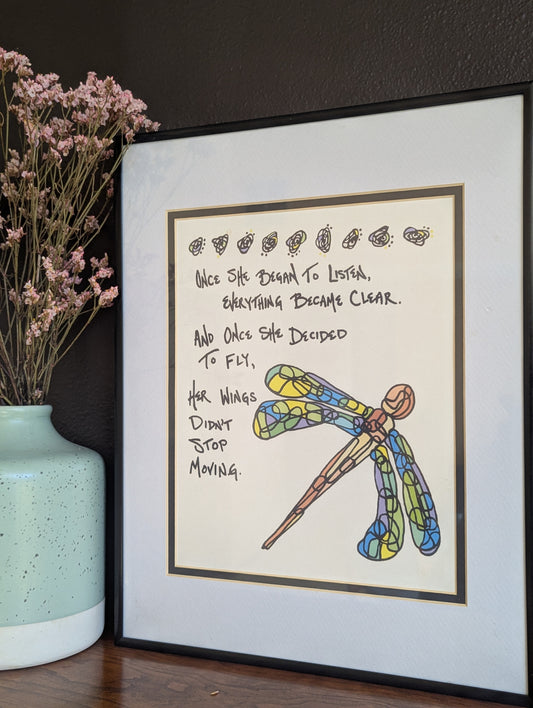 ONCE SHE BEGAN TO LISTEN,
EVERYTHING BECAME CLEAR.
AND ONCE SHE DECIDED
TO FLY,
HER WINGS
DIDN'T
STOP
MOVING.